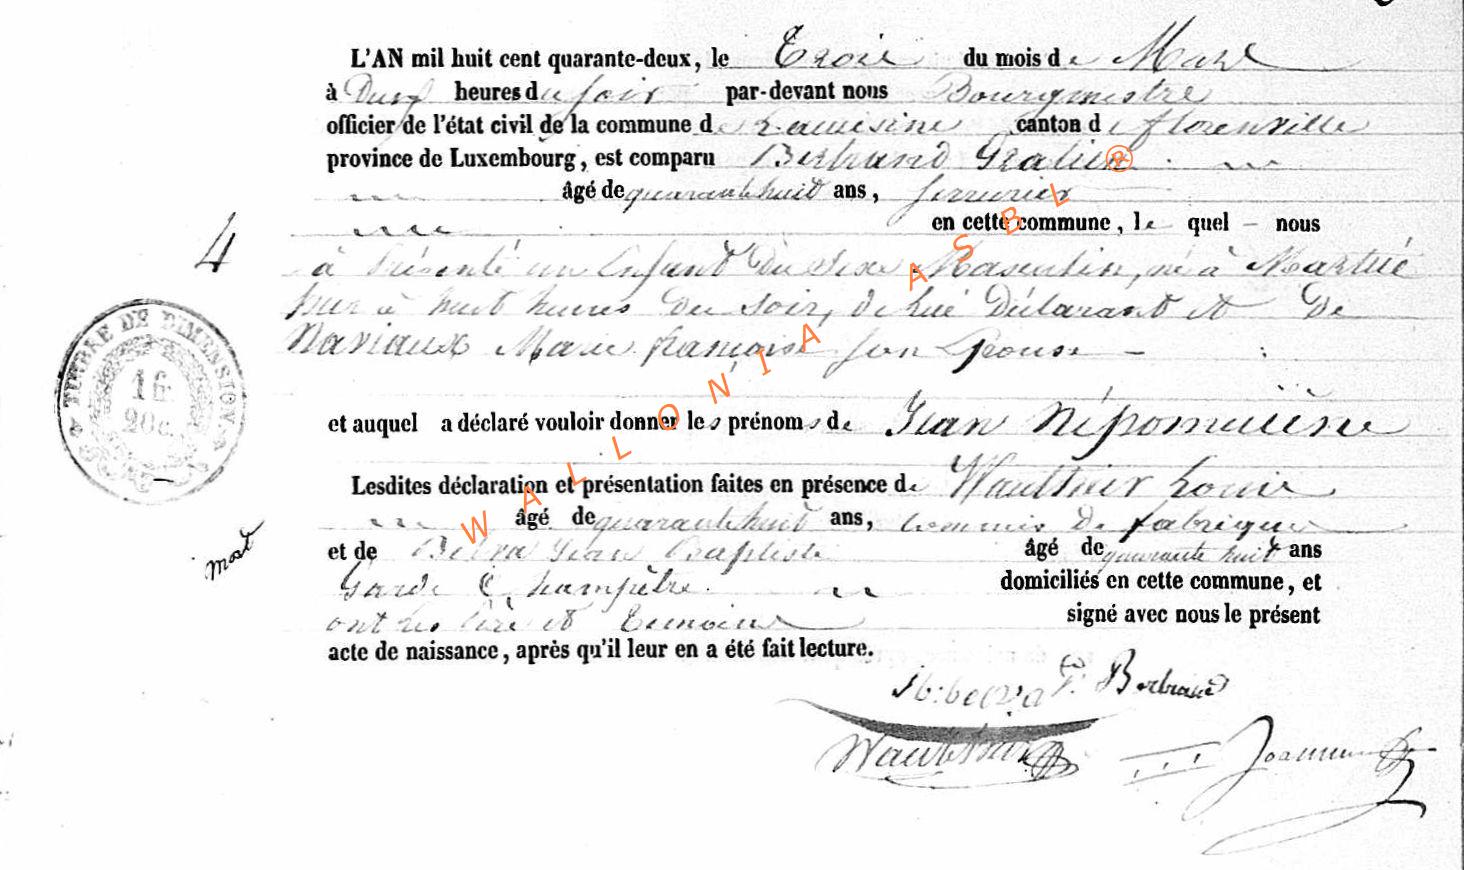 L'AN mil huit cent quarante-deux, le Trois du mois de Mars
à heures du soir par-devant nous Bourgmestre
officier de l'état civil de la commune de canton de florenville
province de Luxembourg, est comparu Bertrand Gratien
âgé de quarante huit ans, serrurier
en cette commune, le quel – nous
4
à Présenté un Enfant Du Sexe Masculin, né à Martué
hier à huit heures du soir, de lui Déclarant et De
Naviaux Marie françoise son Epouse –
TIMBRE DE DIMENSION
1 fr.
20 c.
et auquel a déclaré vouloir donner les prénoms de Jean Népomucène
Lesdites déclaration et présentation faites en présence de Wauthier Louis
âgé de quarante huit ans, commis De fabrique
mort
et de Belva Jean Baptiste âgé de quarante huit ans
Garde Champêtre domiciliés en cette commune, et
ont les père et Temoins signé avec nous le présent
acte de naissance, après qu'il leur en a été fait lecture.
Bertrand
Wauthier
WALLONIA ASBL